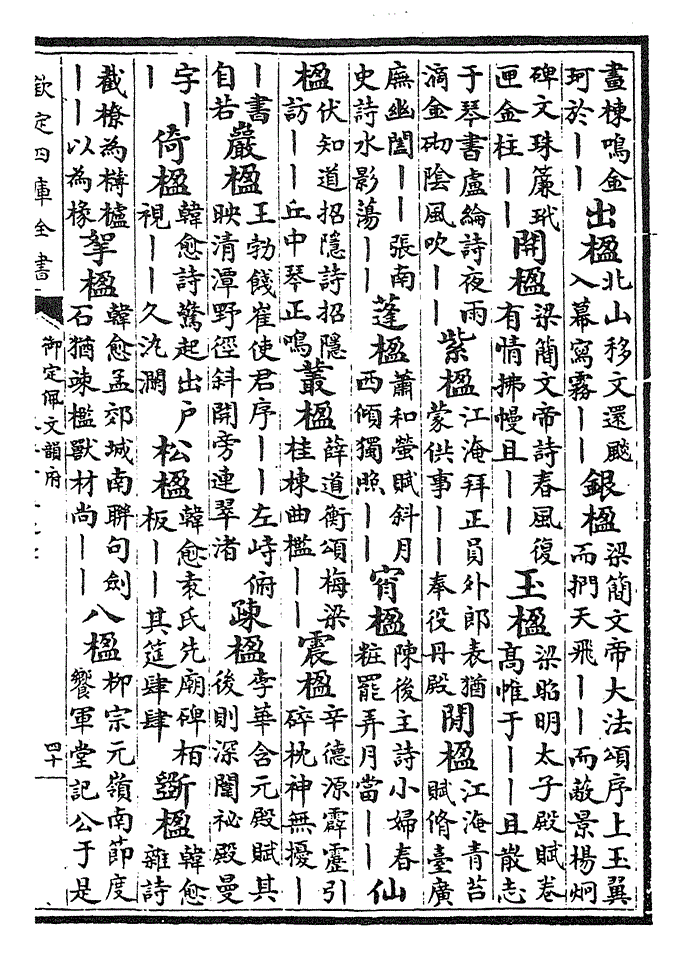 畫棟鳴金珂於｜｜出楹北山移文還飈入幕寫霧｜｜銀楹梁簡文帝大法頌序上玉翼而捫天飛｜｜而蔽景楊炯
碑文珠簾玳匣金柱｜｜開楹梁簡文帝詩春風復有情拂幔且｜｜玉楹梁昭明太子殿賦卷高帷于｜｜且散志
于琴書盧綸詩夜雨滴金砌陰風吹｜｜紫楹江淹拜正員外郎表猶蒙供事｜｜奉役丹殿閒楹江淹青苔賦脩臺廣
廡幽閨｜｜張南史詩水影蕩｜｜蓬楹蕭和螢賦斜月西傾獨照｜｜宵楹陳後主詩小婦春粧罷弄月當｜｜仙
楹伏知道招隱詩招隱訪｜｜丘中琴正鳴叢楹薛道衡頌梅梁桂棟曲檻｜｜震楹辛德源霹靂引碎枕神無擾｜
｜書自若嚴楹王勃餞崔使君序｜｜左峙俯映清潭野徑斜開旁連翠渚疎楹李華含元殿賦其後則深闈祕殿曼
宇｜｜倚楹韓愈詩驚起出戶視｜｜久汍瀾松楹韓愈袁氏先廟碑柏板｜｜其筵肆肆斲楹韓愈雜詩
截橑為欂櫨｜｜以為椽挐楹韓愈孟郊城南聯句劍石猶竦檻獸材尚｜｜八楹柳宗元嶺南節度饗軍堂記公于是
欽定四庫全書
御定佩文韻府
四十